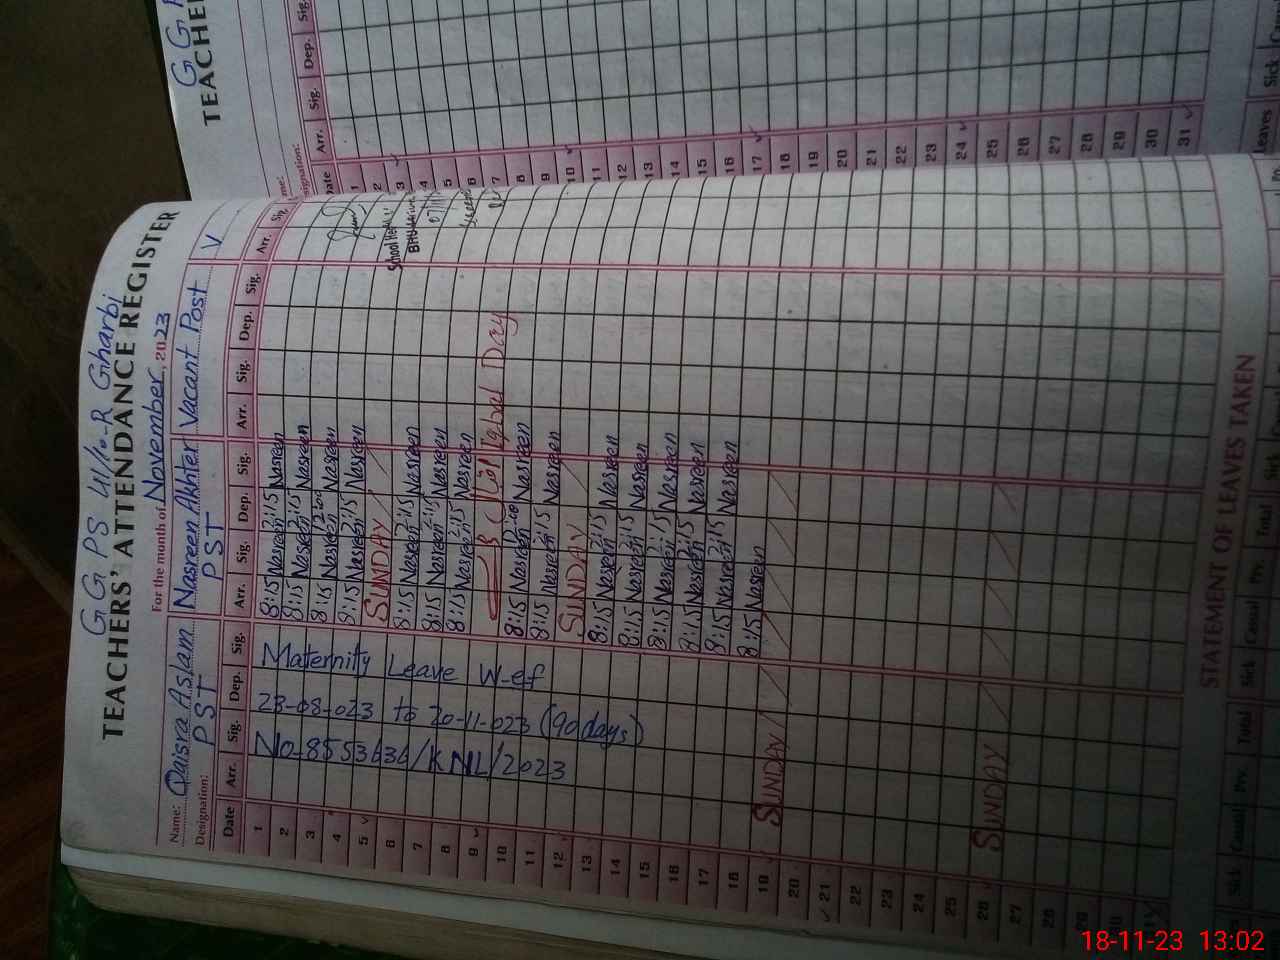 GGPS 41/10-R Gharbi
TEACHERS' ATTENDANCE REGISTER
For the month of November, 2023
Name: Qaisra Aslam Nasreen Akhter Vacant Post V
Designation: PST PST
Date Arr. Sig. Dep. Sig. Arr. Sig. Dep. Sig. Arr. Sig. Dep. Sig. Arr. Sig.
1 8:15 Nasreen 2:15 Nasreen
2 Maternity Leave W-ef 8:15 Nasreen 2:15 Nasreen
3 23-08-023 to 20-11-023 (90 days) 8:15 Nasreen 12:00 Nasreen
4 No-8553636/KNL/2023 8:15 Nasreen 2:15 Nasreen
5 SUNDAY
6 8:15 Nasreen 2:15 Nasreen
7 8:15 Nasreen 2:15 Nasreen
8 8:15 Nasreen 2:15 Nasreen
9 Iqbal Day
10 8:15 Nasreen 12:00 Nasreen
11 8:15 Nasreen 2:15 Nasreen
12 SUNDAY
13 8:15 Nasreen 2:15 Nasreen
14 8:15 Nasreen 2:15 Nasreen
15 8:15 Nasreen 2:15 Nasreen
16 8:15 Nasreen 2:15 Nasreen
17 8:15 Nasreen 2:15 Nasreen
18 8:15 Nasreen
19 SUNDAY
20
21
22
23
24
25
26 SUNDAY
27
28
29
30
31
STATEMENT OF LEAVES TAKEN
Sick Casual Prv. Total Sick Casual Prv. Total Sick
GG
TEACHER
Date Arr. Sig. Dep. Sig.
1
2
3
4
5
6
7
8
9
10
11
12
13
14
15
16
17
18
19
20
21
22
23
24
25
26
27
28
29
30
31
Leaves Sick
18-11-23 13:02